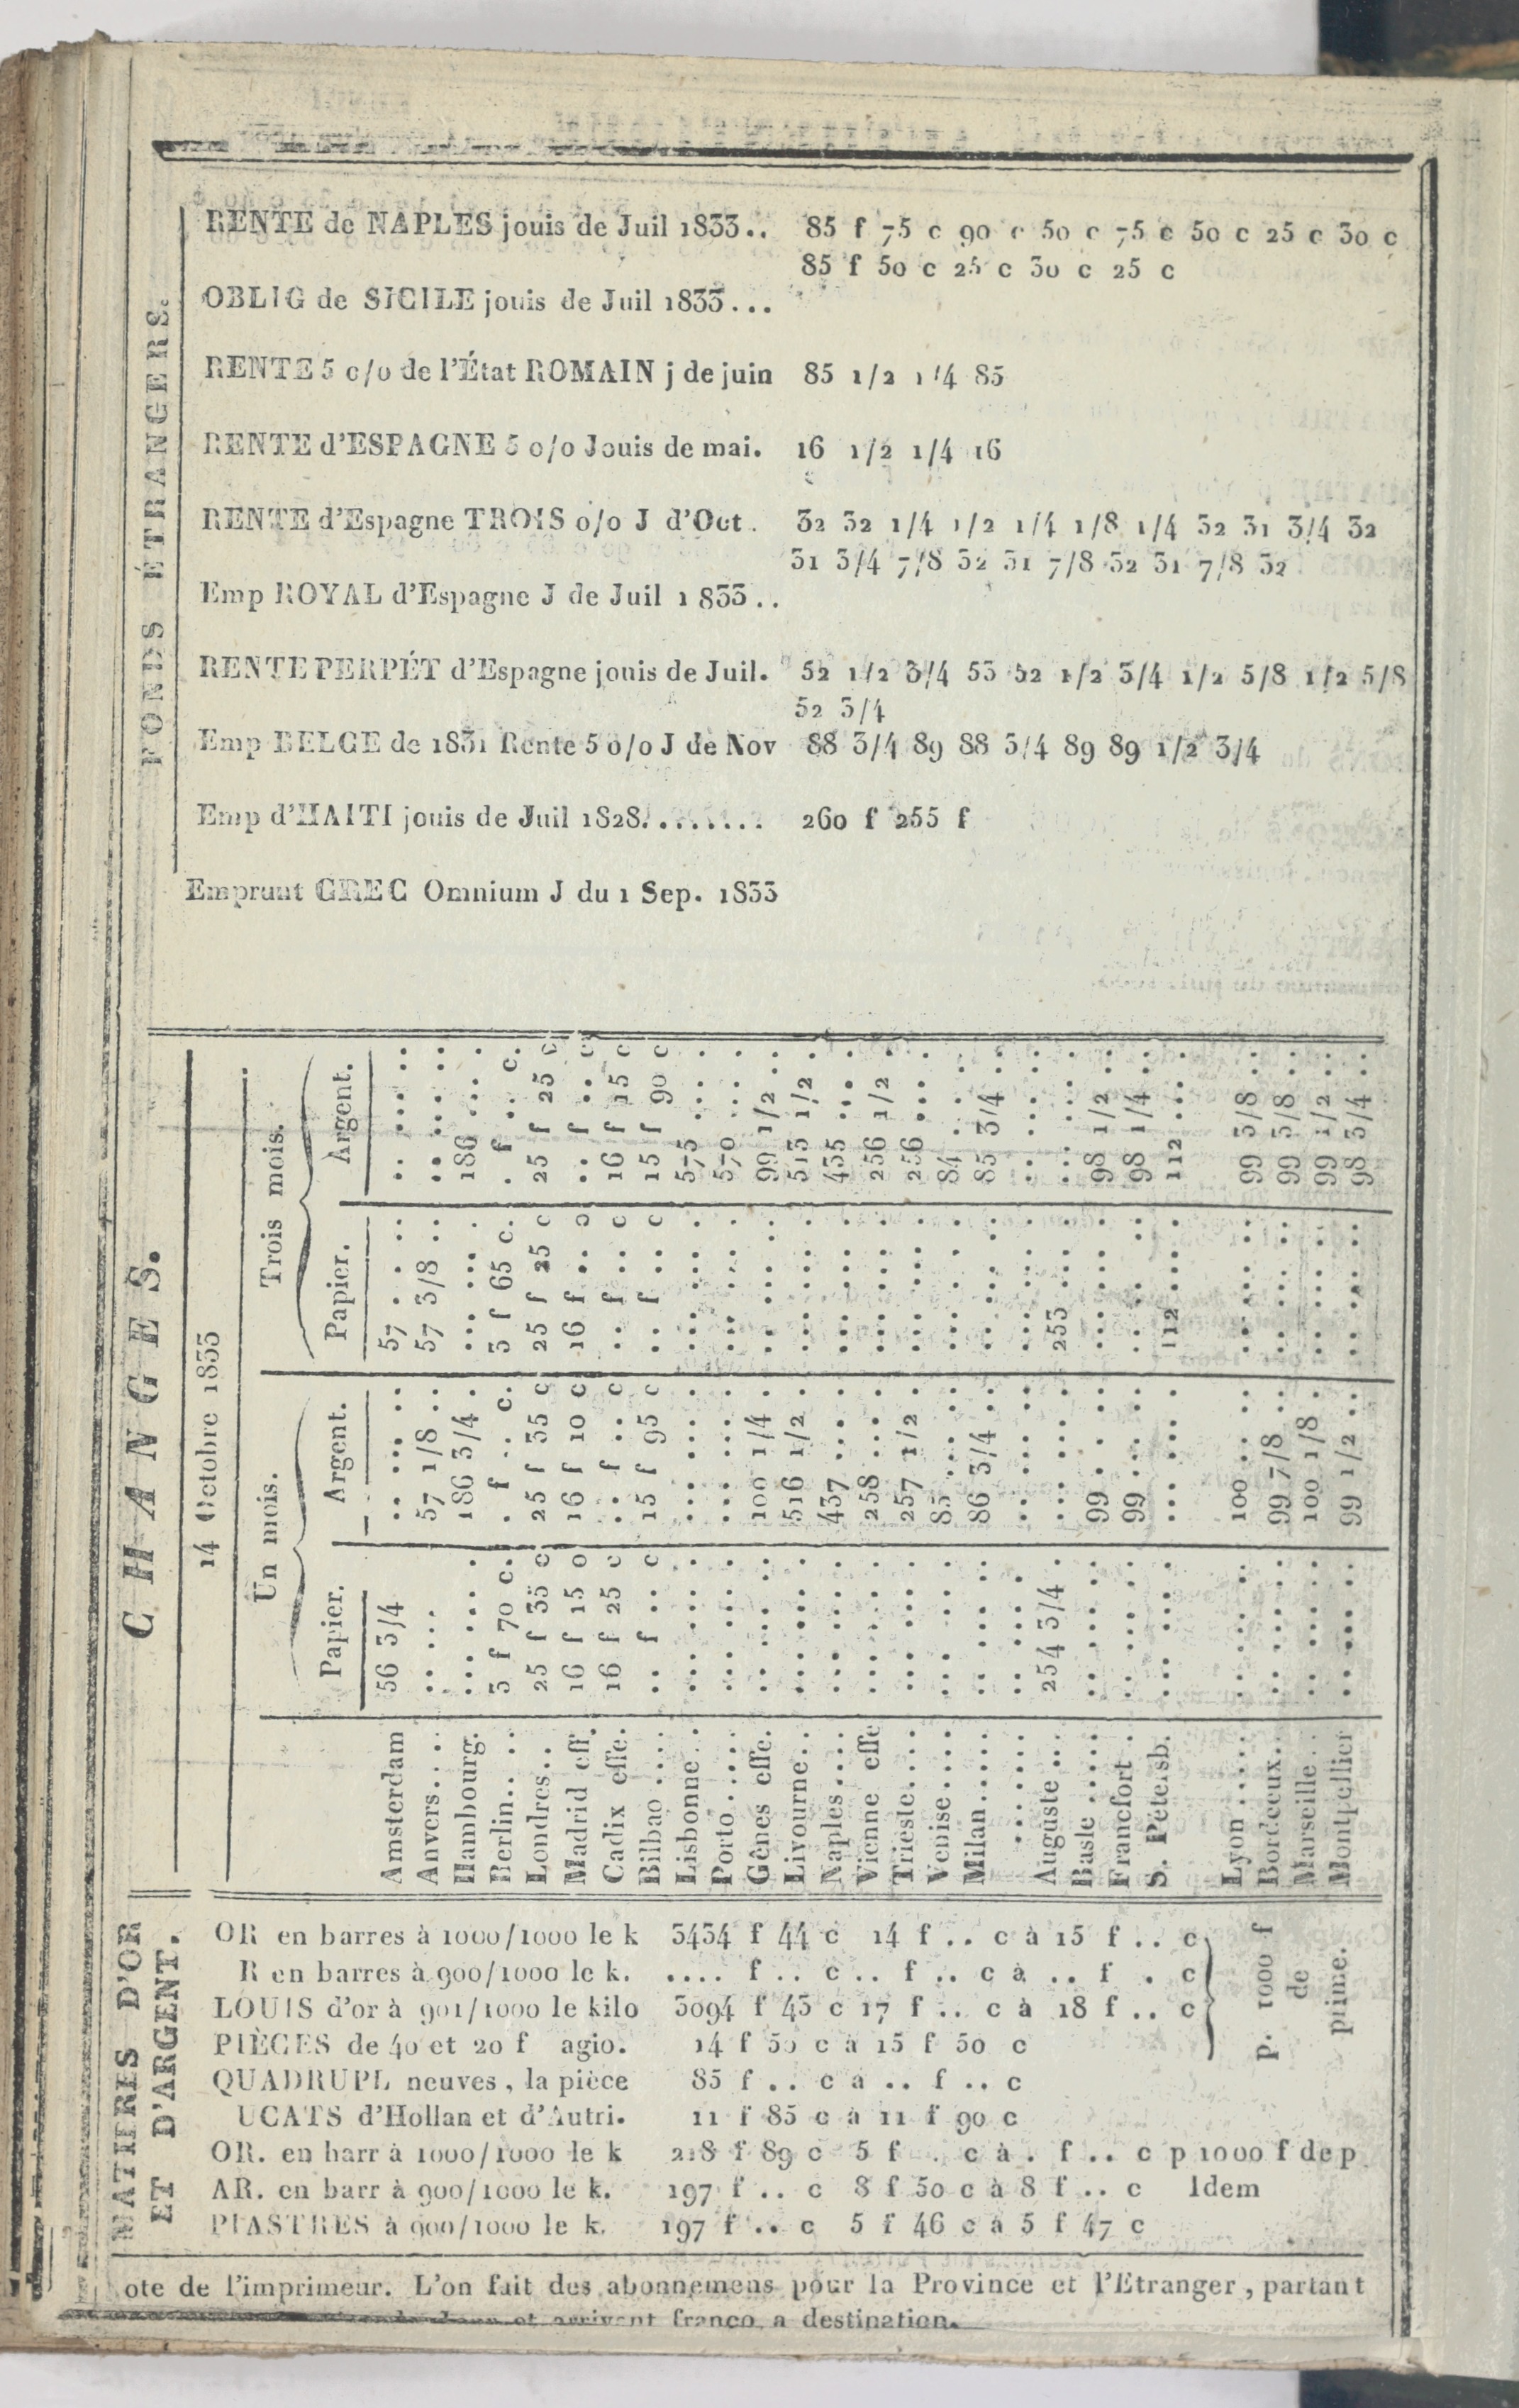 FONDS ÉTRANGERS.
RENTE de NAPLES jouis de Juil 1833.. 85 f 75 c 90 c 50 c 75 c 50 c 25 c 30 c
85 f 50 c 25 c 30 c 25 c
OBLIG de SICILE jouis de Juil 1833...
RENTE 5 o/o de l'État ROMAIN j de juin 85 1/2 1/4 85
RENTE d'ESPAGNE 5 o/o Jouis de mai. 16 1/2 1/4 16
RENTE d'Espagne TROIS o/o J d'Oct. 32 32 1/4 1/2 1/4 1/8 1/4 32 31 3/4 32
31 3/4 7/8 32 31 7/8 32 31 7/8 32
Emp ROYAL d'Espagne J de Juil 1833..
RENTE PERPÉT d'Espagne jouis de Juil. 52 1/2 3/4 53 52 1/2 3/4 1/2 5/8 1/2 5/8
52 3/4
Emp BELGE de 1831 Rente 5 o/o J de Nov 88 3/4 89 88 3/4 89 89 1/2 3/4
Emp d'HAITI jouis de Juil 1828........ 260 f 255 f
Emprunt GREC Omnium J du 1 Sep. 1833
CHANGES.
14 Octobre 1833
Un mois. Trois mois.
Papier. Argent. Papier. Argent.
Amsterdam 56 3/4 .. ... .. 57 . .. .. .. ... ..
Anvers.... .. ... 57 1/8 .. 57 3/8 .. .. ... ..
Hambourg. ... ... . 186 3/4 . ... ... . 186 ... .
Berlin.... 3 f 70 c. . f .. c. 3 f 65 c. . f .. c.
Londres... 25 f 35 c 25 f 35 c 25 f 25 c 25 f 25 c
Madrid eff. 16 f 15 c 16 f 10 c 16 f .. c .. f .. c
Cadix effe. 16 f 25 c .. f .. c .. f .. c 16 f 15 c
Bilbao .... .. f .. c 15 f 95 c .. f .. c 15 f 90 c
Lisbonne .. ... ... . ... ... . ... ... . 575 ... .
Porto ..... ... ... . ... ... . ... ... . 570 ... .
Gênes effe. .. ... . 100 1/4 . .. ... . 99 1/2 .
Livourne.. ... ... . 516 1/2 . ... ... . 513 1/2 .
Naples..... ... ... . 437 ... . ... ... . 435 ... .
Vienne effe ... ... . 258 ... . ... ... . 256 1/2 .
Trieste.... ... ... . 257 1/2 . ... ... . 256 ... .
Venise.... .. ... . 85 ... . .. ... . 84 ... .
Milan..... .. ... . 86 3/4 . .. ... . 85 3/4 .
....... .. ... . .. ... . .. ... . .. ... .
Auguste ... 254 3/4 . ... ... . 253 ... . ... ... .
Basle ..... .. ... . 99 ... . .. ... . 98 1/2 .
Francfort . .. ... . 99 ... . .. ... . 98 1/4 .
S. Pétersb. ... ... . ... ... . 112 ... . 112 ... .
Lyon ..... .. ... .. 100 .. .. .. ... .. 99 3/8 ..
Bordeeux... .. ... .. 99 7/8 .. .. ... .. 99 3/8 ..
Marseille... .. ... .. 100 1/8 . .. ... .. 99 1/2 ..
Montpellier .. ... .. 99 1/2 .. .. ... .. 98 3/4 ..
MATIERES D'OR
ET D'ARGENT.
OR en barres à 1000/1000 le k 3434 f 44 c 14 f .. c à 15 f .. c
R en barres à 900/1000 le k. .... f .. c .. f .. c à .. f . c
LOUIS d'or à 901/1000 le kilo 3094 f 43 c 17 f .. c à 18 f .. c
p. 1000 f
de
prime.
PIÈCES de 40 et 20 f agio. 14 f 50 c à 15 f 50 c
QUADRUPL neuves, la pièce 85 f .. c a .. f .. c
UCATS d'Hollan et d'Autri. 11 f 85 c à 11 f 90 c
OR. en barr à 1000/1000 le k 218 f 89 c 5 f . c à . f .. c p 1000 f de p
AR. en barr à 900/1000 le k. 197 f .. c 8 f 50 c à 8 f .. c Idem
PIASTRES à 900/1000 le k. 197 f .. c 5 f 46 c à 5 f 47 c
ote de l'imprimeur. L'on fait des abonnemens pour la Province et l'Etranger, partant
et arrivent franco a destination.